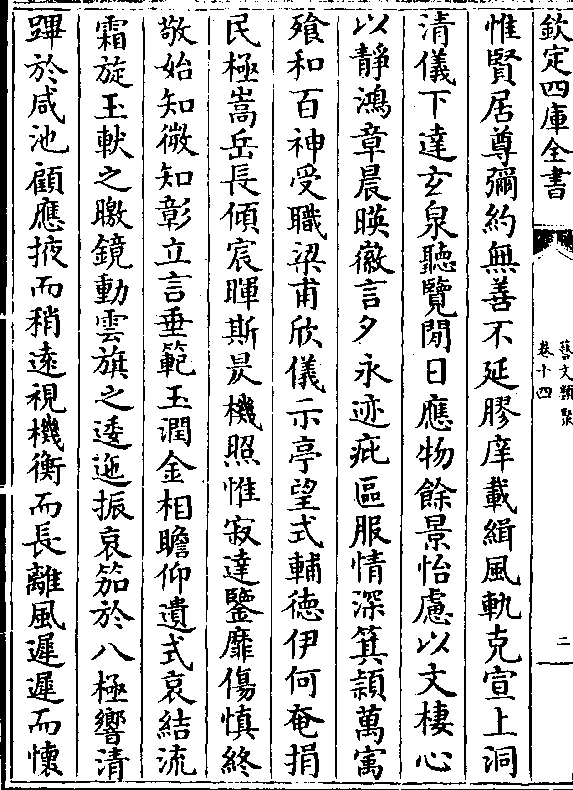 欽定四庫全書
藝文類聚
卷十四
二
惟賢居尊彌約無善不延膠庠載緝風軌克宣上洞
清儀下達玄泉聽覽閒日應物餘景怡慮以文棲心
以靜鴻章晨暎徽言夕永迹疵區服情深箕潁萬㝢
飱和百神受職梁甫欣儀云亭望式輔徳伊何奄捐
民極嵩岳長傾宸暉斯昃機照惟寂達鑒靡傷慎終
敬始知微知彰立言垂範玉潤金相瞻仰遺式哀結流
霜旋玉軑之曒鏡動雲旗之逶迤振哀笳於八極響清
蹕於咸池顧應掖而稍逺視機衡而長離風遲遲而懷